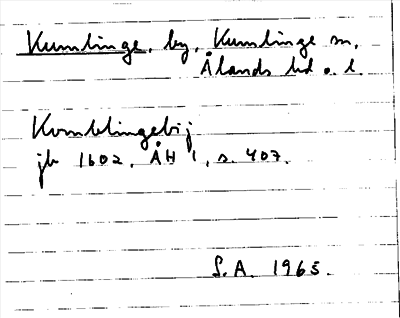 Kumlinge, by, Kumlinge sn,
Ålands hd o. l.
Kombblingebij
jb 1602, ÅH 1, s. 407.
S.A. 1965.